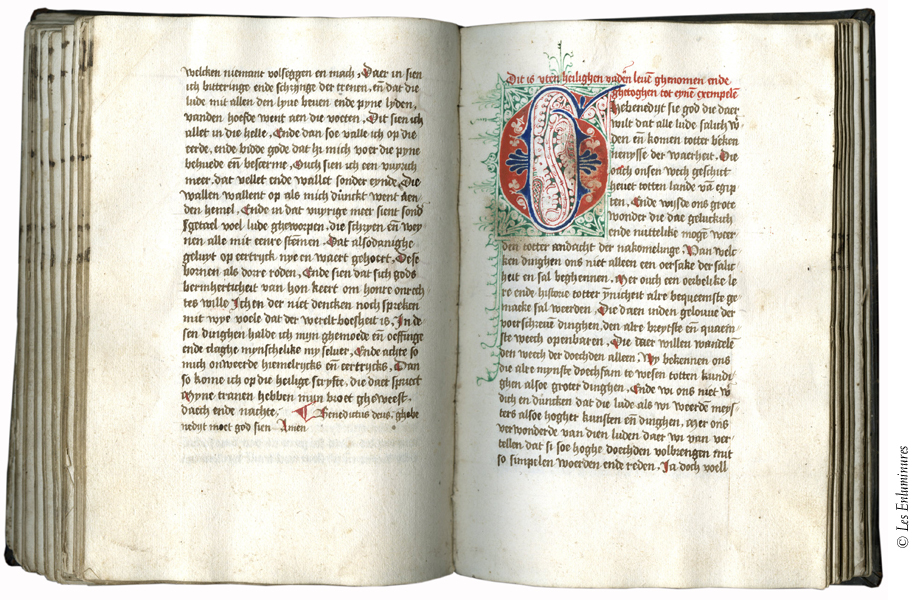 welcken niemant volseggen en mach, Daer in sien
ich bitteringe ende schrijnge der trenen, en dat die
lude mit allen den lyue beuen ende pyne lyden,
vanden hoefde went aen die voeten, Dit sien ich
allet in die helle, Ende dan soe valle ich op die
eerde, ende bidde gode dat hi mich voer die pyne
behuede en bescerme, Ouch sien ich een vuyrich
meer, dat vollet ende wallet sonder eynde, Die
wallen wallent op als mich dunckt went aen
den hemel, Ende in dat vuyrige meer sient sond
getael voel lude gheworpen, die schryen en wey
nen alle mit eenre stemen, Dat alsodanighe
geluyt op eertryck nye en waert gehoert, Dese
bornen als dorre roden, Ende sien dat sich gods
bermherticheit van hon keert om honre onrech
tes wille Ich en der niet dencken noch spreken
mit wye voele dat der werelt boesheit is, In de
sen dinghen halde ich myn ghemoede en oeffinge
ende claghe mynschelike my seluer, Ende achte so
mich onweerde hiemelrycks en eertrycks, Dan
so kome ich op die heilige scryfte, die daer spruect
Myne tranen hebben myn broet gheweest,
daech ende nachte, Benedictus deus, ghebe
nedyt moet god sien Amen
Dit is vten heilighen vaderen leuen ghenomen ende
ghetoghen tot eynen exempelen
Ghebenedijt sie god die daer
wilt dat alle lude salich w
den en komen totter beken
tenysse der waerheit, Die
oach onsen wech geschict
heuet totten lande van egip
ten, Ende wijsde ons grote
wonder die dae geluckich
ende nuttelike mogen weer
den totter andacht der nakomelinge, Van wel
ken dinghen ons niet alleen een oersake der salic
heit en sal beghennen, Mer ouch een oerbelike le
re ende historie totter ynicheit alre bequeemste ge
maeckt sal werden, Die daer inden gelouue der
voerschreuen dinghen, den alre breytste en quaem
ste wech openbaren, Die daer willen wandelen
den weech der doechden alleen, Wy bekennen ons
die alre mynste doechsam te wesen totten kunde
ghen alsoe groter dinghen, Ende wi ons niet
dich en duncken dat die lude als wi weerden mey
sters alsoe hogher kunsten en dinghen, Mer ons
verwonderde van dien luden daer wi van ver
tellen dat si soe hoghe doechden volbrengen mit
so simpelen woerden ende reden, Ja doch voell
© Les Enluminures